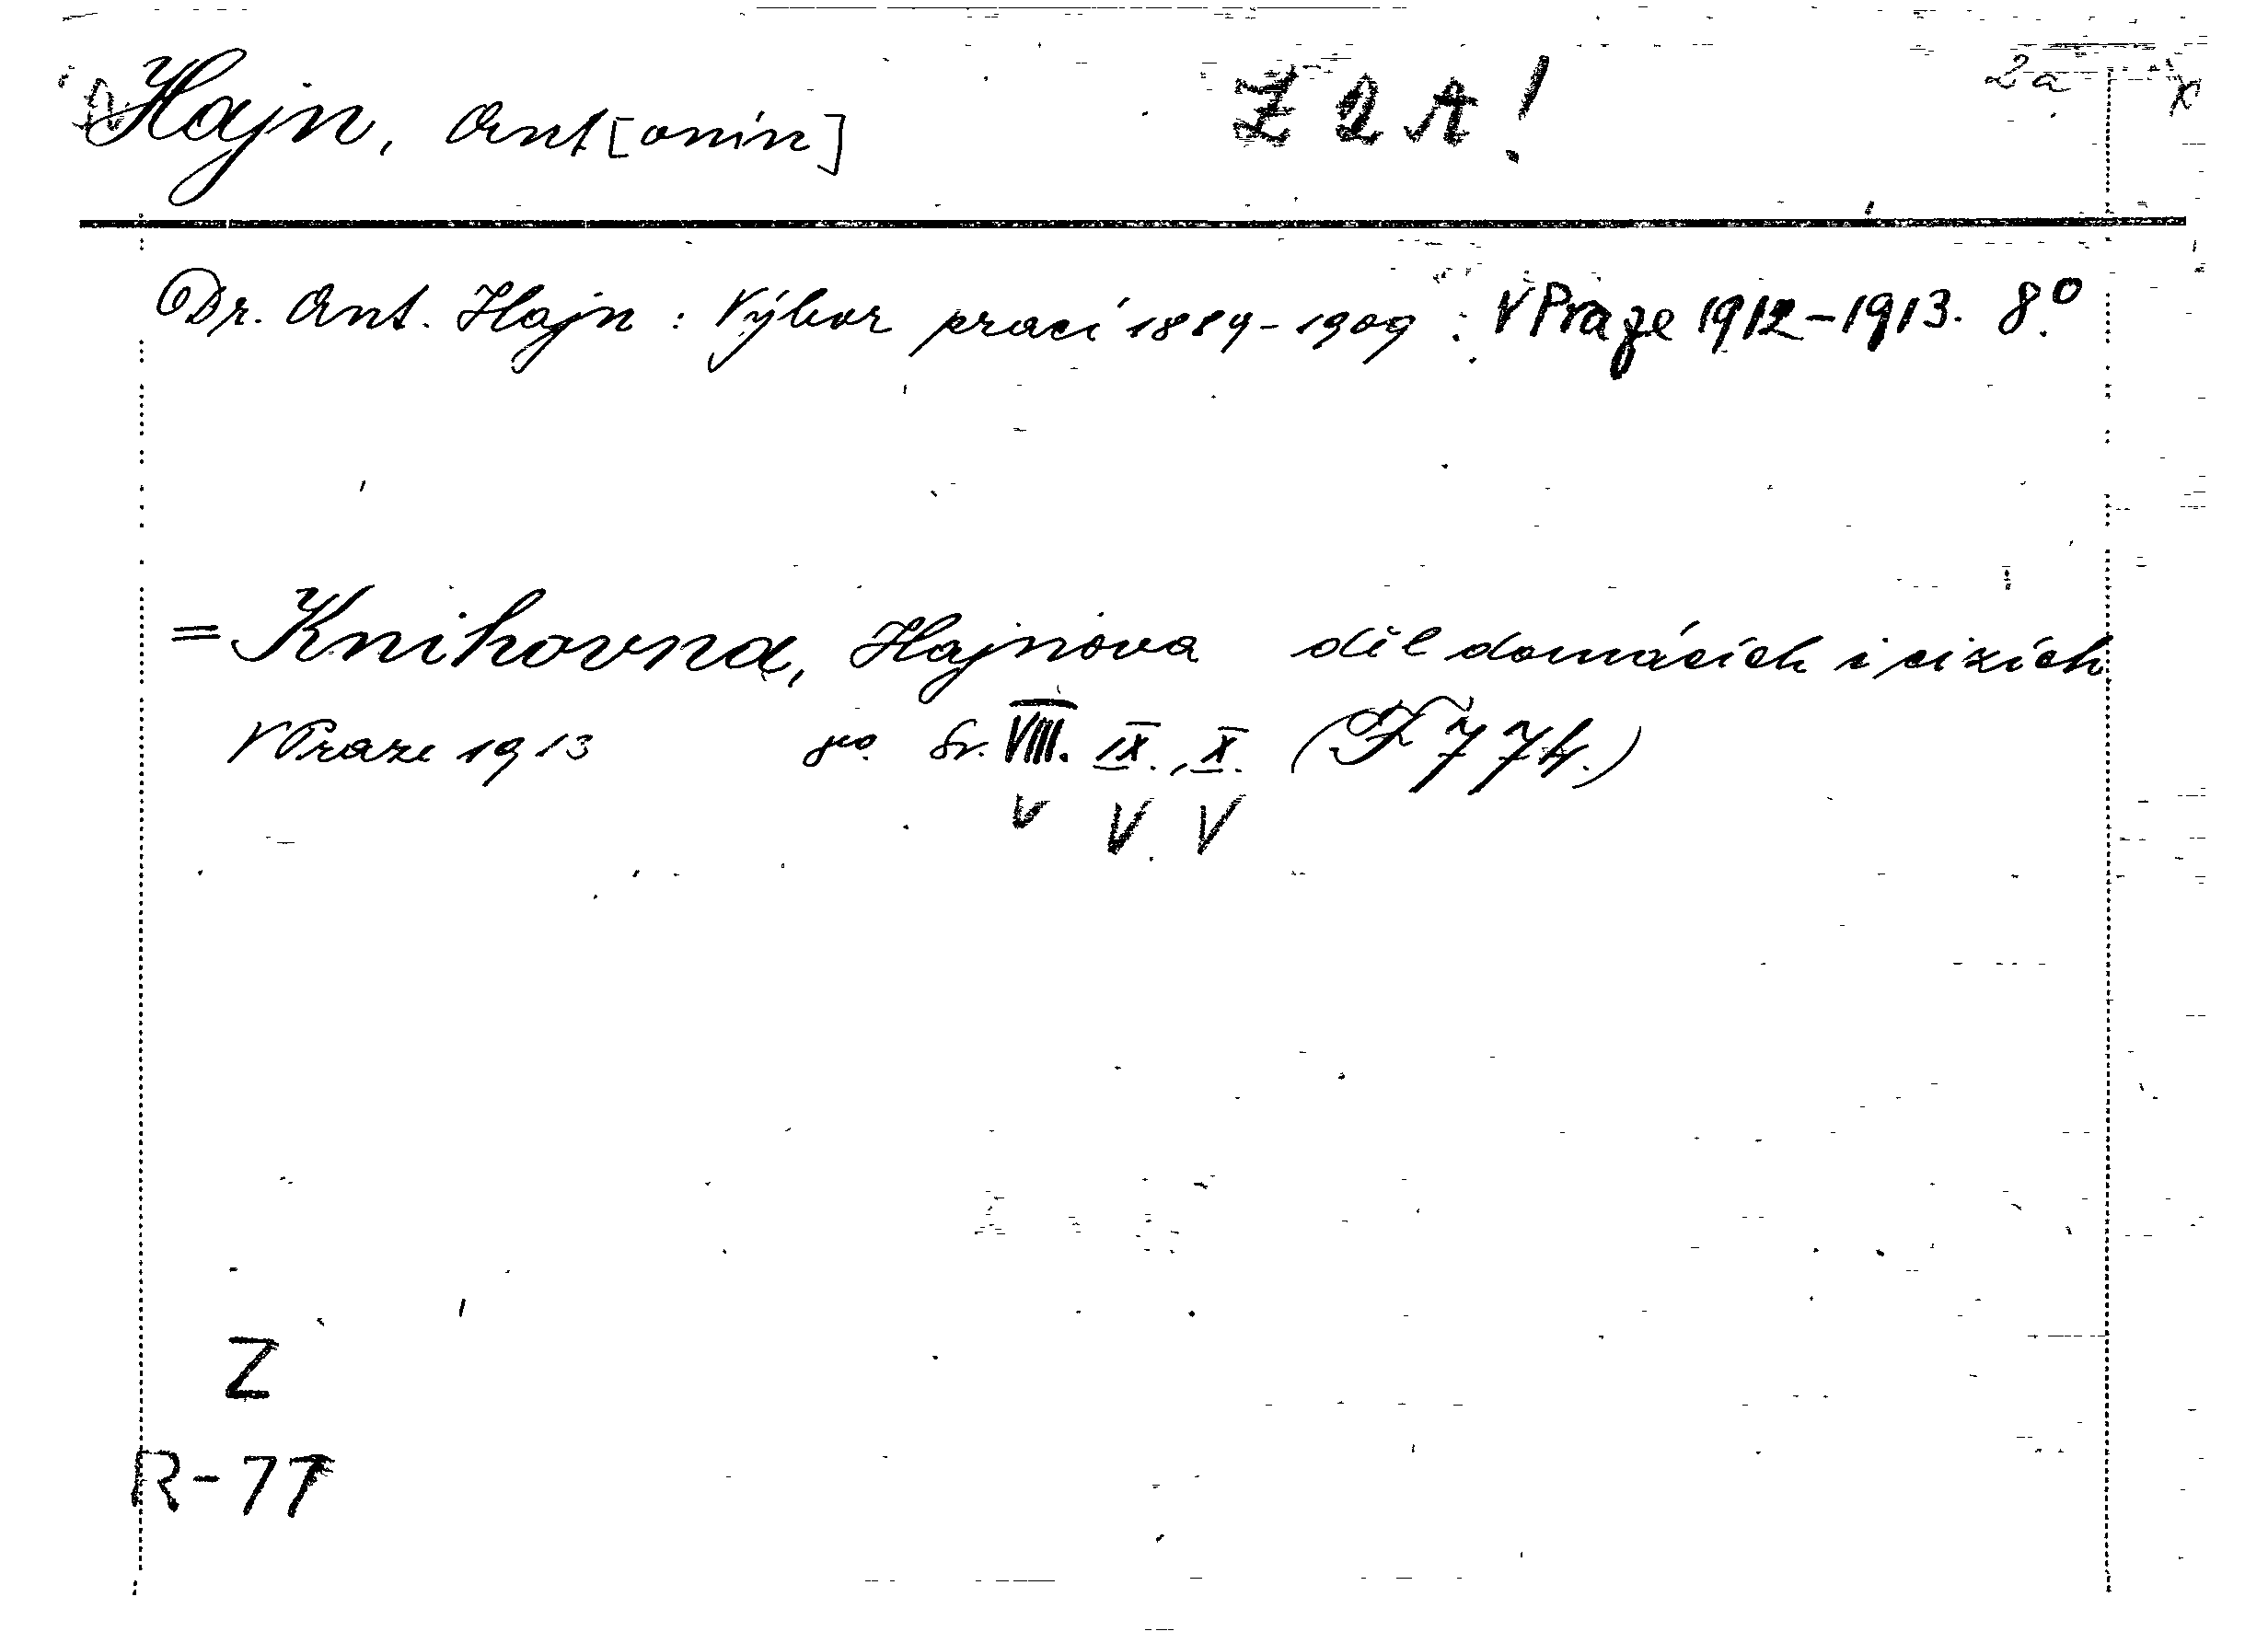 Hajn, Ant[onín] Z 2 A! 2a
Dr. Ant. Hajn: Výbor prací 1889-1909. V Praze 1912-1913. 8.º
= Knihovna, Hajnova děl domácích i cizích
V Praze 1913 8º. Sv. VIII. IX., X. (F 774.)
V V V
Z
R-77